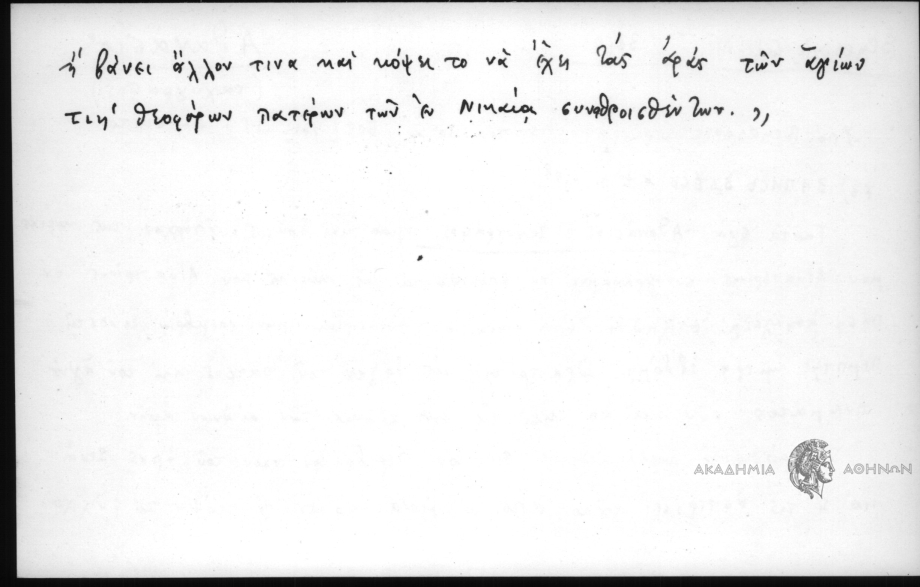 ἤ βάνει ἄλλον τινα καὶ κόψει το νὰ ἔχει τάς ἀράς τῶν ἁγίων
τιη' θεοφόρων πατέρων τῶν ἐν Νικαίᾳ συναθροισθέντων. »
ΑΚΑΔΗΜΙΑ ΑΘΗΝΩΝ